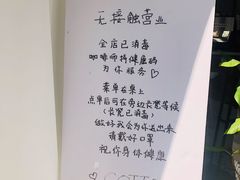 无接触营业
全店已消毒
咖啡师持健康码
为你服务♡
菜单在桌上
点单后可在旁边长凳等候
(长凳已消毒)
做好我会为你送出来
请戴好口罩
祝你身体健康